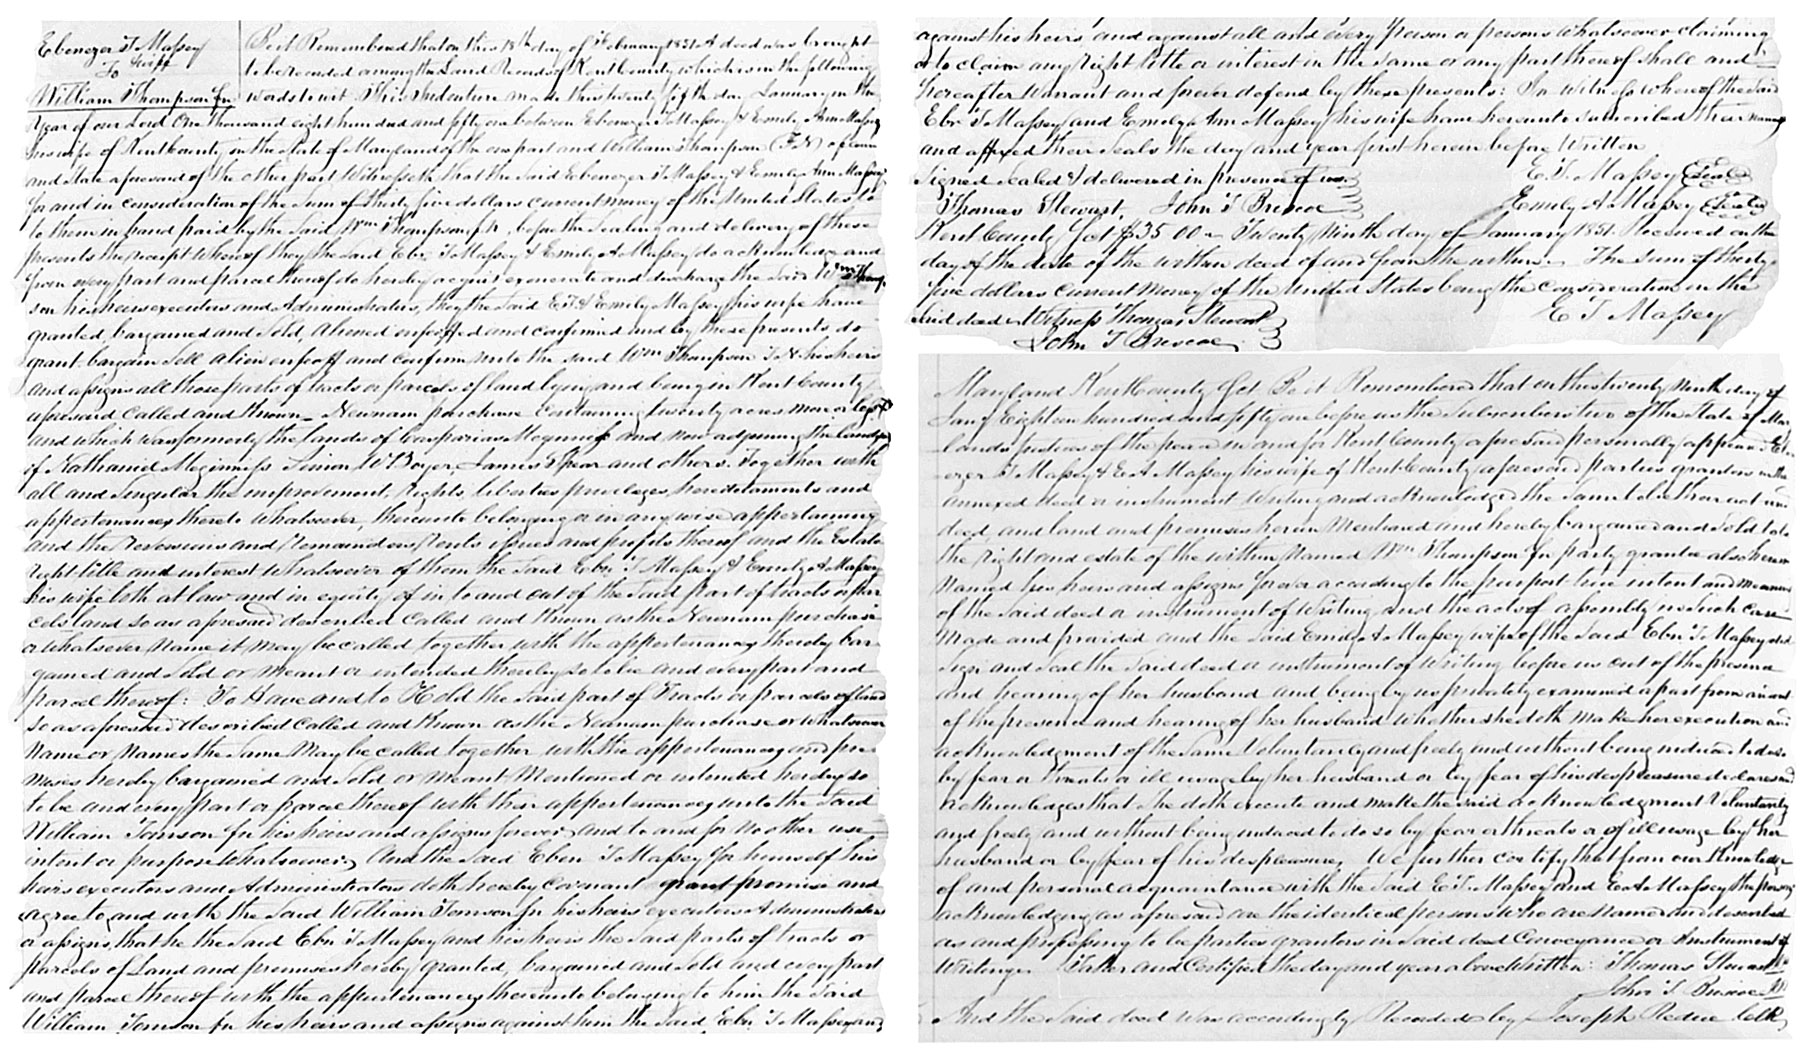 Ebenezer T Massey
& wife
To
William Thompson Jn
Be it Remembered that on this 18th day of February 1851 A deed was brought
to be recorded among the Land Records of Kent County which is in the following
words to wit. This Indenture made this twenty fifth day January in the
year of our Lord One thousand eight hundred and fifty one between Ebenezer T Massey & Emily Ann Massey
his wife of Kent County in the State of Maryland of the one part and William Thompson of
and State aforesaid of the other part Witnesseth that the Said Ebenezer T Massey & Emily Ann Massey
for and in consideration of the Sum of thirty five dollars current money of the United States to
to them in hand paid by the Said Wm Thompson Jr, before the Sealing and delivery of these
presents the receipt whereof they the Said Ebn. T Massey & Emily A Massey do acknowledge and
from every part and parcel thereof do hereby acquit exonerate and discharge the Said Wm Thomp
son his heirs executors and Administrators, they the Said E T & Emily Massey his wife have
granted, bargained and Sold, aliened enfeoffed and confirmed and by these presents do
grant bargain Sell alien enfeoff and confirm unto the said Wm Thompson his heirs
and assigns all those parts of tracts or parcels of land lying and being in Kent County
aforesaid called and Known Newnam purchase Containing twenty acres more or less
and which was formerly the lands of Casparias Meginniss and now adjoining the lands
of Nathaniel Meginniss Simon W Boyer, James Spear and others. Together with
all and Singular the improvement, rights, liberties privileges, hereditaments and
appertenances thereto Whatsoever, thereunto belonging or in any wise appertaining
and the Reversions and Remainders Rents issues and profits thereof and the Estate
right title and interest Whatsoever of them the Said Ebn T Massey & Emily A Massey
his wife both at law and in equity of in to and out of the Said part of tracts or par
cels land so as aforesaid described Called and Known as the Newnam purchase
or whatsoever name it may be called together with the appertenances thereby bar
gained and Sold or meant or intended thereby so to be and every part and
parcel thereof: To Have and to Hold the Said part of Tracts or parcels of land
so as aforesaid described Called and Known as the Newnam purchase or whatsoever
Name or Names the Same May be called together with the appertenances and pre
mises hereby bargained and Sold or Meant Mentioned or intended hereby so
to be and every part or parcel thereof with their appertenances unto the Said
William Tomson Jn his heirs and assigns forever and to and for No other use
intent or purpose whatsoever, And the Said Eben T Massey for himself his
heirs executors and Administrators doth hereby Covenant grant promise and
agree to and with the Said William Tomson Jn his heirs executors Administrators
or assigns, that he the Said Ebn T Massey and his heirs the Said parts of tracts or
parcels of Land and premises hereby granted, bargained and Sold and every part
and parcel thereof with the appertenances thereunto belonging to him the Said
William Tomson Jn his heirs and assigns against him the Said Ebn T Massey and
against his heirs and against all and every person or persons Whatsoever claiming
or to claim any right title or interest in the Same or any part thereof Shall and
hereafter Warrant and forever defend by these presents: In Witness whereof the Said
Ebn T Massey and Emily Ann Massey his wife have hereunto subscribed their names
and affixed their Seals the day and year first herein before Written
Signed sealed & delivered in presence of us
E. T. Massey Seal
Thomas Stewart, John T Briscoe
Emily A Massey Seal
Kent County Sct $35.00 Twenty Ninth day of January 1851. Received on the
day of the date of the within deed of and from the within The Sum of thirty
five dollars current Money of the United States being the Consideration in the
said deed Witness Thomas Stewart
E T Massey
John T Briscoe
Maryland Kent County Sct Be it Remembered that on this twenty Ninth day of
Jany Eighteen hundred and fifty one before us the Subscribers two of the State of Mary
lands justices of the peace in and for Kent County aforesaid personally appeared Eben
ezer T Massey & E A Massey his wife of Kent County aforesaid parties grantors in the
annexed deed or instrument Writing and acknowledged the Same to be their act and
deed, and land and premises herein Mentioned and hereby bargained and Sold to be
the right and estate of the within Named Wm Thompson Jn party grantee also herein
Named his heirs and assigns forever according to the purport true intent and meaning
of the Said deed or instrument of Writing and the acts of assembly in Such case
Made and provided and the Said Emily A Massey wife of the Said Ebn T Massey did
sign and seal the Said deed or instrument of Writing before us out of the presence
and hearing of her husband and being by us privately examined apart from and out
of the presence and hearing of her husband Whether she doth make her execution and
acknowledgment of the Same Voluntarily and freely and without being induced to do so
by fear or threats or ill usage by her husband or by fear of his displeasure declares and
acknowledges that She doth execute and make the said acknowledgment Voluntarily
and freely and without being induced to do so by fear or threats or of ill usage by her
husband or by fear of his displeasure, We further certify that from our Knowledge
of and personal acquaintance with the Said E. T. Massey and E A Massey the persons
acknowledging as aforesaid are the identical persons Who are Named and described
as and professing to be parties grantors in Said deed Conveyance or Instrument of
Writing. Taken and Certified the day and year above Written: Thomas Stewart
John T Briscoe
And the Said deed Was accordingly Recorded by Joseph Redue Clk